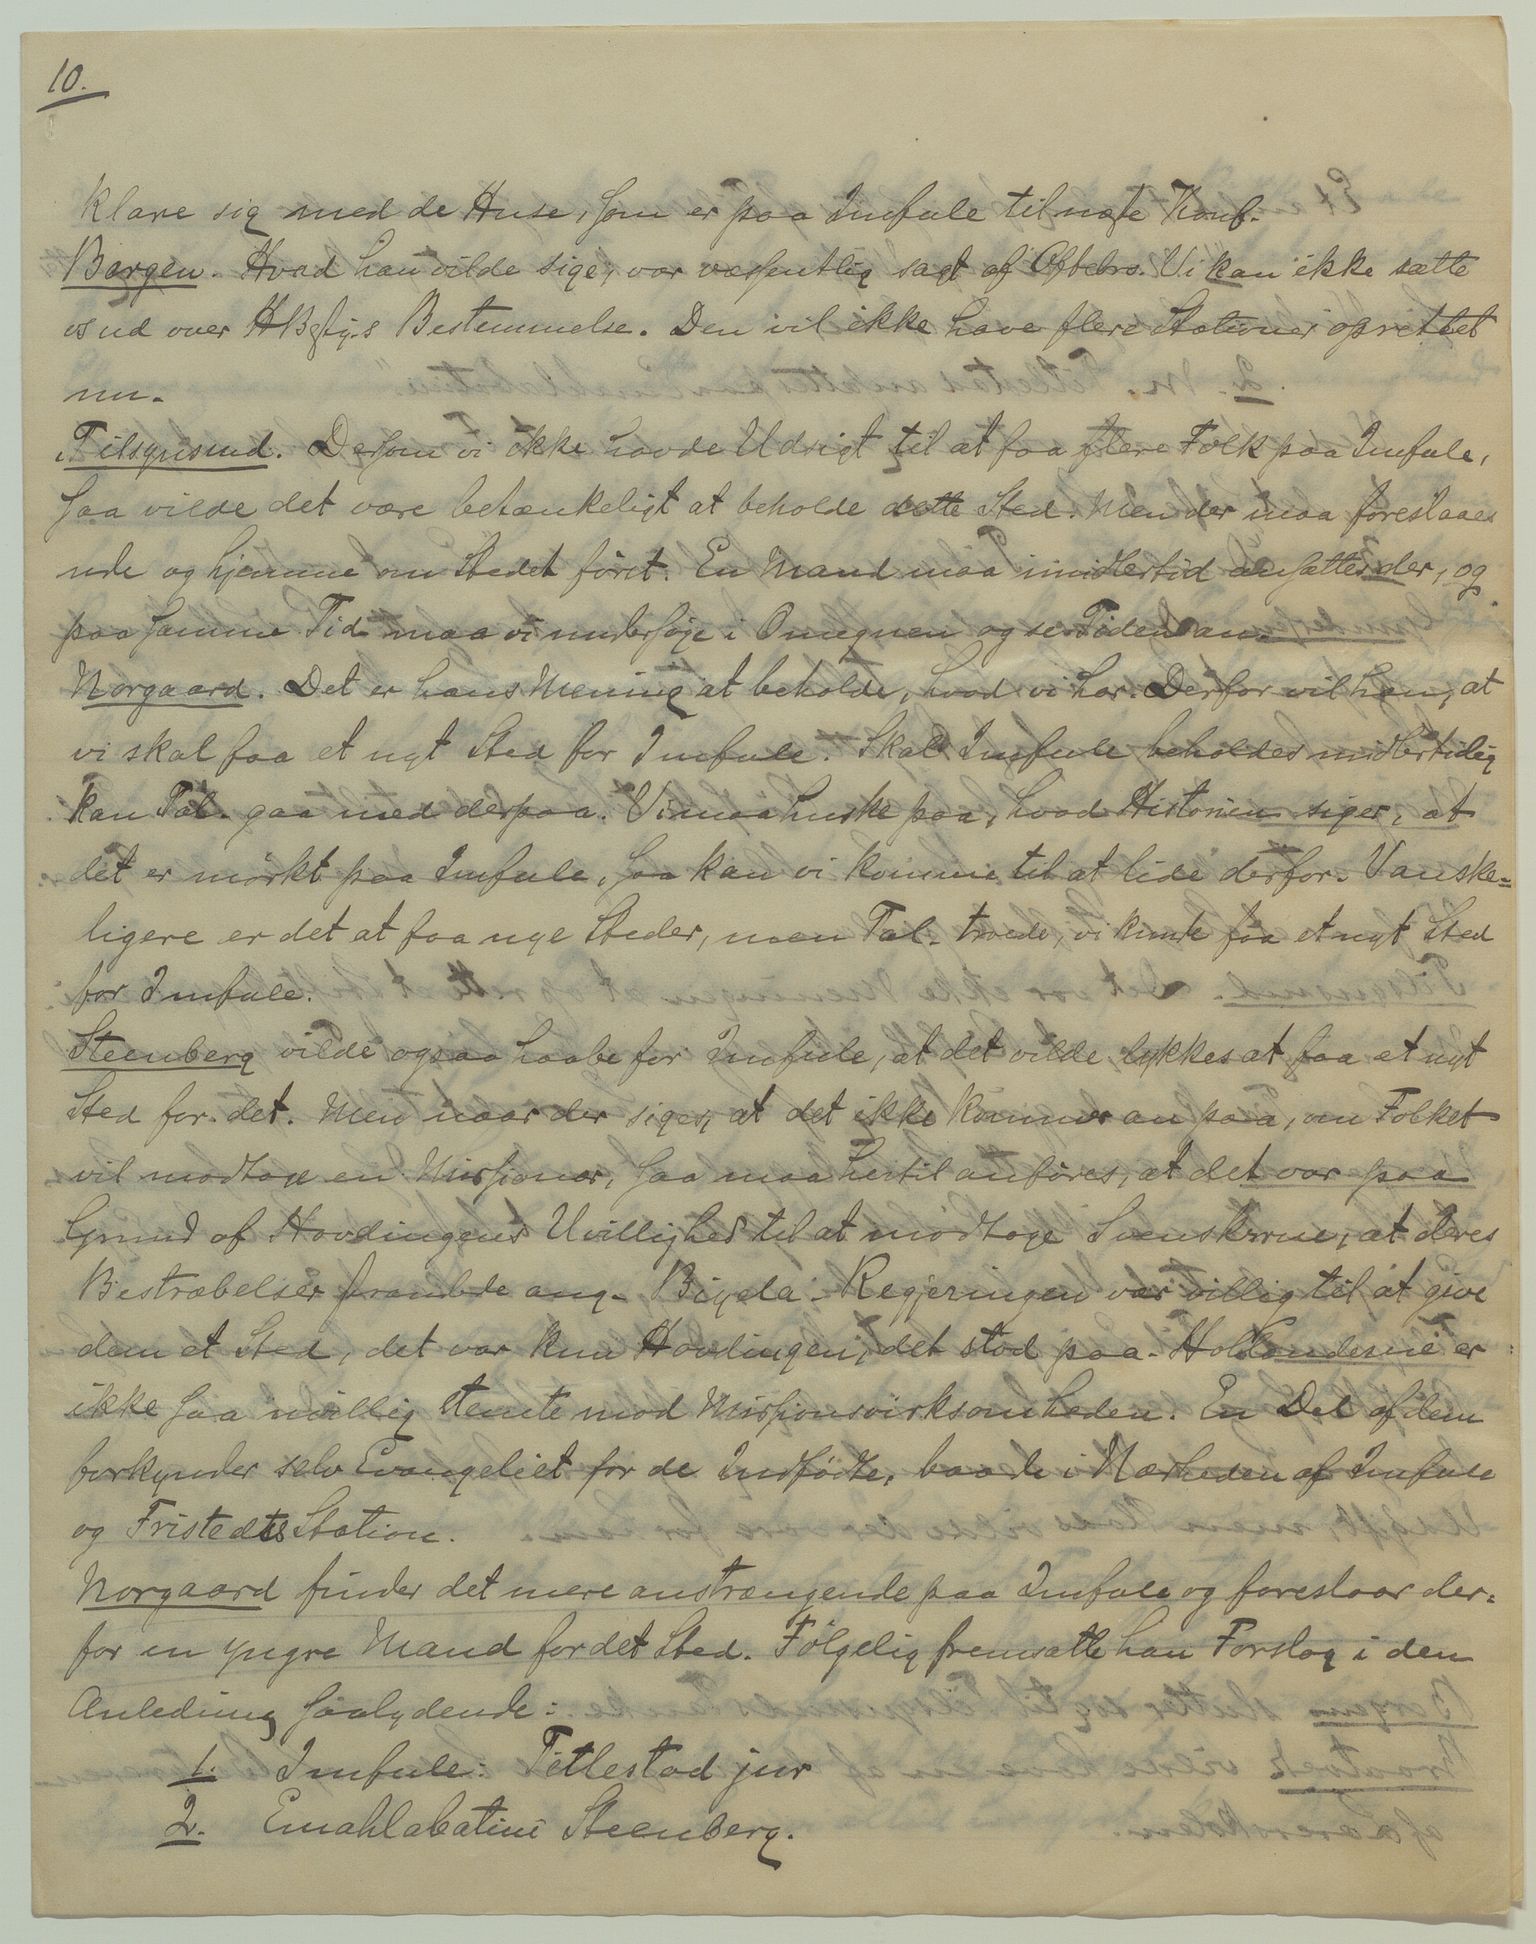 10.
klare sig med de Huse, som er paa Imfule til næste Konf.
Borgen. Hvad han vilde sige, var væsentlig sagt af Oftebro. Vi kan ikke sætte
os ud over HBstyr.s Bestemmelse. Den vil ikke have flere Stationer oprettet
nu.
Titlesnund. Dersom vi ikke havde Udsigt til at faa flere Folk paa Imfule,
saa vilde det være betænkeligt at beholde dette Sted. Men der maa foreslaaes
ude og hjemme om Stedet först. En Mand maa imidlertid ansættes der, og
paa samme Tid maa vi undersöge i Omegnen og se Tiden an.
Norgaard. Det er hans Mening at beholde, hvad vi har. Derfor vil han, at
vi skal faa et nyt Sted for Imfule. Skal Imfule beholdes midlertidig
kan Tal. gaa med derpaa. Vi maa huske paa, hvad Historien siger, at
det er mörkt paa Imfule, saa kan vi komme til at lide derfor. Vanske=
ligere er det at faa nye Steder, men Tal. troede, vi kunde faa et nyt Sted
for Imfule.
Steenberg vilde ogsaa haabe for Imfule, at det vilde lykkes at faa et nyt
Sted for det. Men naar der siges, at det ikke kommer an paa, om Folket
vil modtage en Missionær, saa maa hertil anföres, at det var paa
Grund af Hövdingens Uvillighed til at modtage Svenskerne, at deres
Bestræbelser strandede ang. Biyela. Regjeringen var villig til at give
dem et Sted, det var kun Hövdingen, det stod paa. Hollænderne er
ikke saa uvillig stemte mod Missionsvirksomheden. En Del af dem
forkynder selv Evangeliet for de Indfödte, baade i Nærheden af Imfule
og Fristedts Station.
Norgaard finder det mere anstrængende paa Imfule og foreslaar der=
for en yngre Mand for det Sted. Fölgelig fremsatte han Forslag i den
Anledning saalydende:
1. Imfule: Titlestad jur
2. Emahlabatini Steenberg.